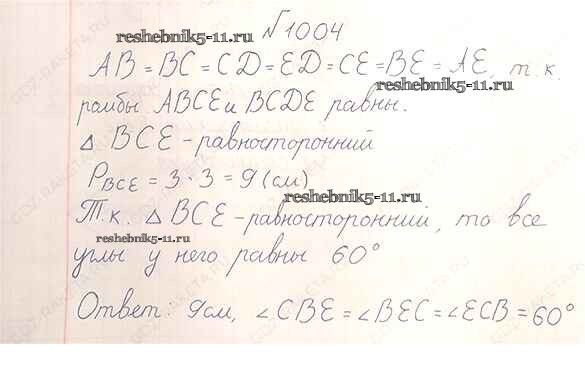 №1004
reshebnik5-11.ru
AB = BC = CD = ED = CE = BE = AE, т.к.
reshebnik5-11.ru
ромбы ABCE и BCDE равны.
△ BCE - равносторонний
P_BCE = 3 · 3 = 9 (см)
reshebnik5-11.ru
Т.к. △ BCE - равносторонний, то все
reshebnik5-11.ru
углы у него равны 60°
Ответ: 9см, ∠CBE = ∠BEC = ∠ECB = 60°